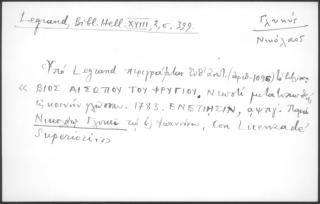 Legrand, Bibl. Hell. XVIII, 2, σ. 399.
Γλυκύς
Νικόλαος
Ὑπὸ Legrand περιγράφεται (ἀριθ. 1096)
« ΒΙΟΣ ΑΙΣΩΠΟΥ ΤΟΥ ΦΡΥΓΙΟΥ. Νεωστὶ
κοινὴν γλῶσσαν. 1783. ΕΝΕΤΙΗΣΙΝ, αψπγ΄. Παρὰ
Νικολάῳ Γλυκεῖ τῷ ἐξ Ἰωαννίνων, Con Licenza de'
Superiori.»